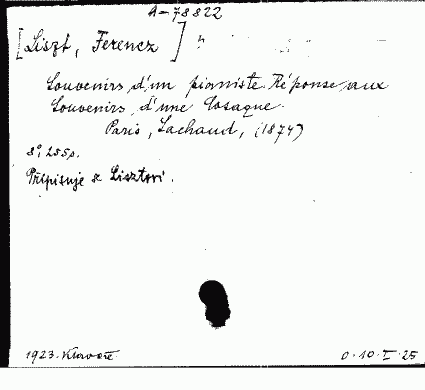 A-78822
[Liszt, Ferencz]
Souvenirs d'un pianiste. Réponse aux
Souvenirs d'une Cosaque.
Paris, Lachaud, (1874)
8°, 255p.
Připisuje se Lisztovi.
1923.
0.10.I.25